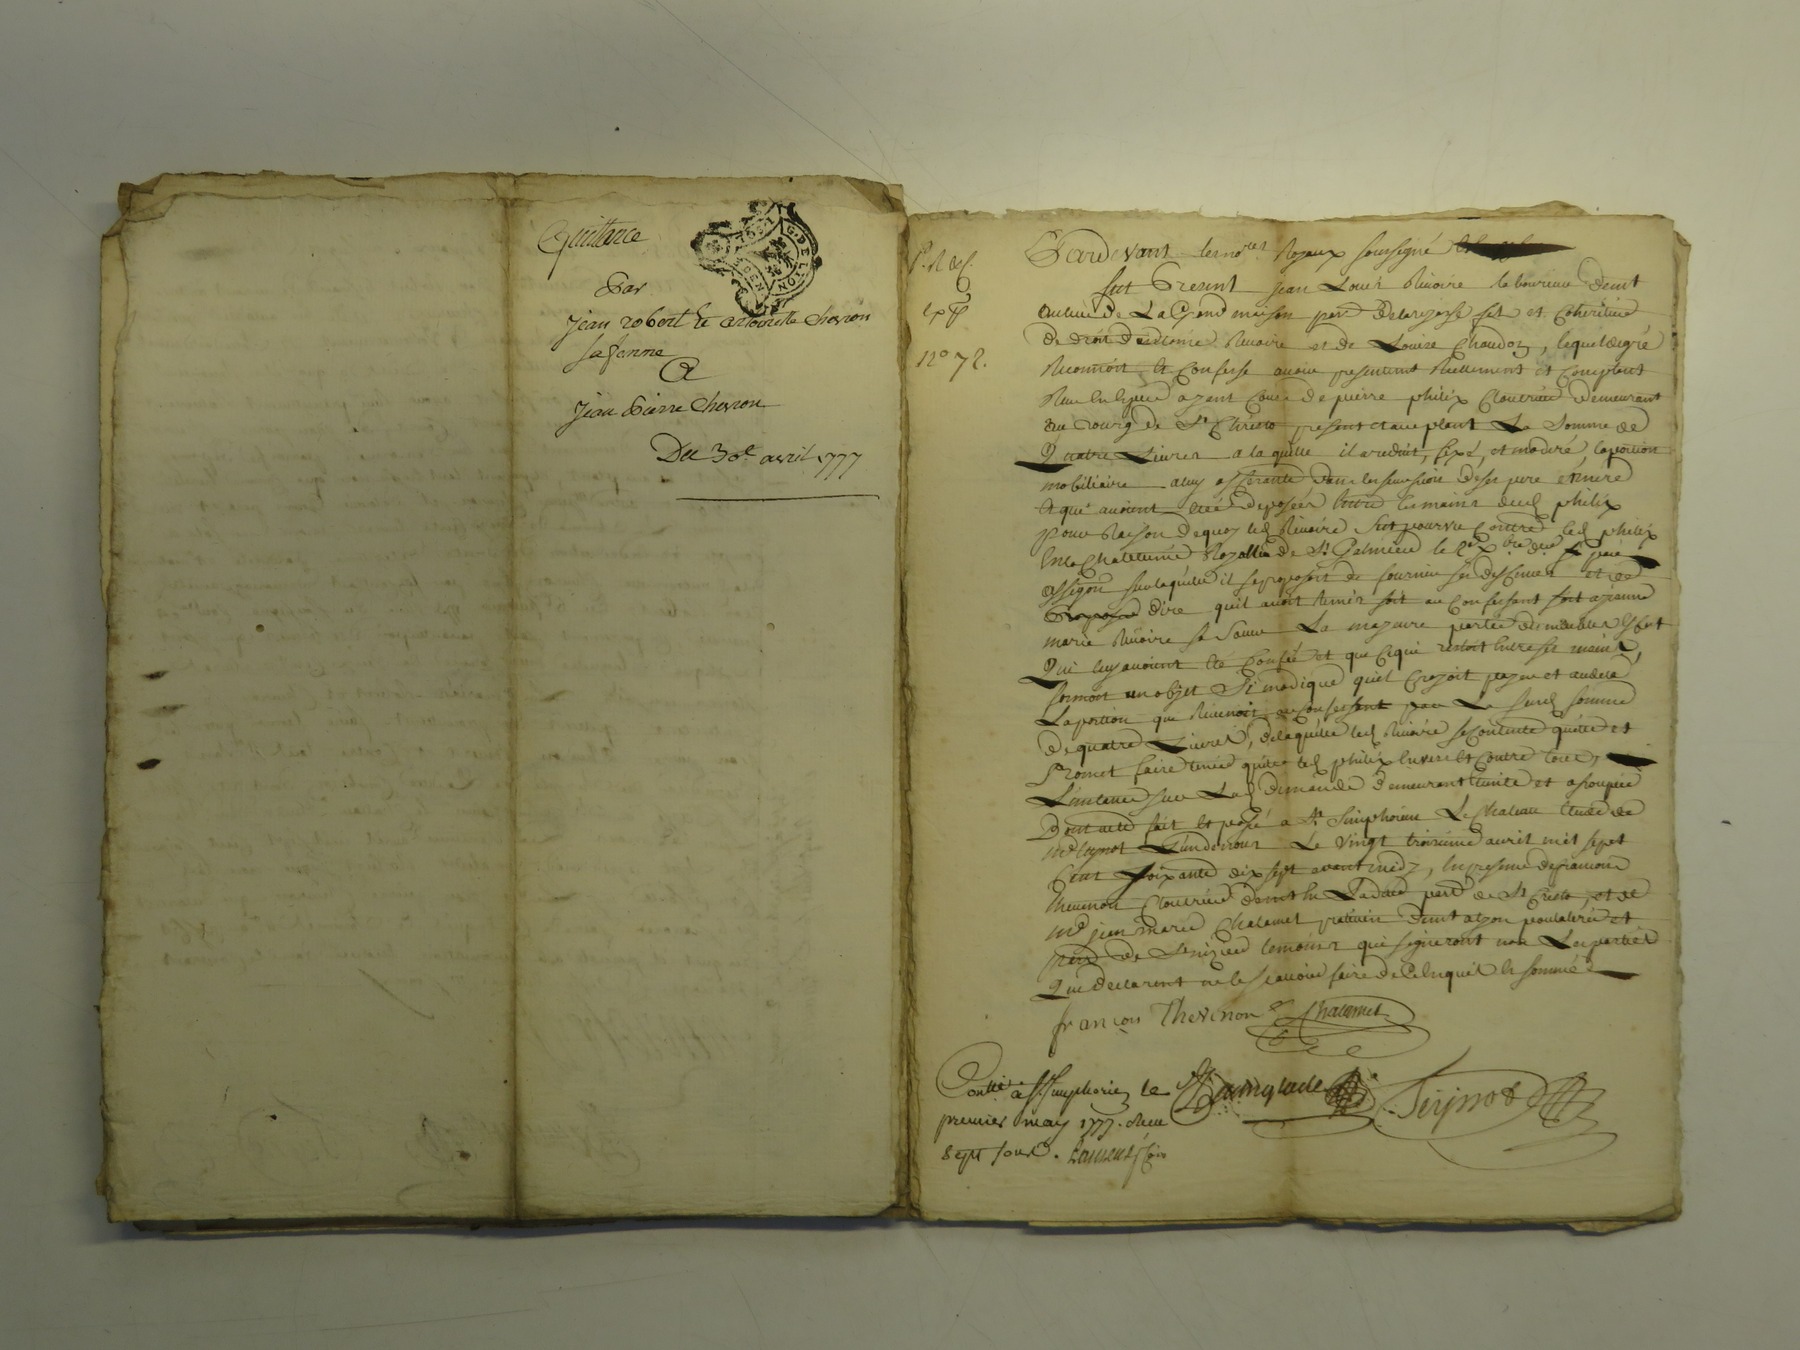 Quittance
Par
Jean robert et antoinette Chevron
sa femme
A
Jean Pierre Chevron
Du 30e avril 1777
G. DE LYON
No 72.
Pardevant les nores Royaux soussigné
fut Present jean Louis Rivoire laboureur demt
au lieu de La Grand maison
de droit de Rivoire et de Louise Chaudon, lequel de gré
Reconnoit et Confesse avoir presentement Reellement et Comptant
Reçu de pierre philix Cloutrier demeurant
au Bourg de St Christo present et acceptant La Somme de
Quatre Livres a laquelle il a reduit, fixé, et moderé, la portion
mobiliaire a luy afferante dans la succession de ses pere et mere
et qui avoient étée deposées entre les mains dud philix
pour Raison dequoy led Rivoire fut pourvu Contre led philix
En la Chatelenie Royalle de St Galmier le
assigon sur laquelle il se proposoit de fournir ses deffences et de
dire quil avoit remis soit au Confessant soit a jeanne
marie Rivoire sa Soeur La majeure partie des meubles
Qui luy avoient été Confié et que Ce qui restoit entre ses mains,
formoit un objet Si modique quil Croyoit payer et audela
La portion que Revenoit au Confessant par La Susd somme
de quatre Livres, de laquelle led Rivoire se Contente quitte et
Promet faire tenir quitte led philix Envers et Contre tous,
L'instance sur Lad demande demeurant eteinte et assoupie
Dont acte fait et passé a St Simphorien Le Chateau Etude de
Me L'un de nous Le vingt troisieme avril mil sept
Cent soixante dix sept avant midy, En presence de francois
thevenon Cloutrier demt Parre de St Cristo, et de
Me jean marie Chalamet praticien demt
de St nizier temoins qui signeront non Les parties
Qui declarent ne le scavoir faire de Ce Enquis et sommés
françois Thevenon Chalamet
Conllé a St Simphorien le
premier may 1777. Reçu
sept sous.